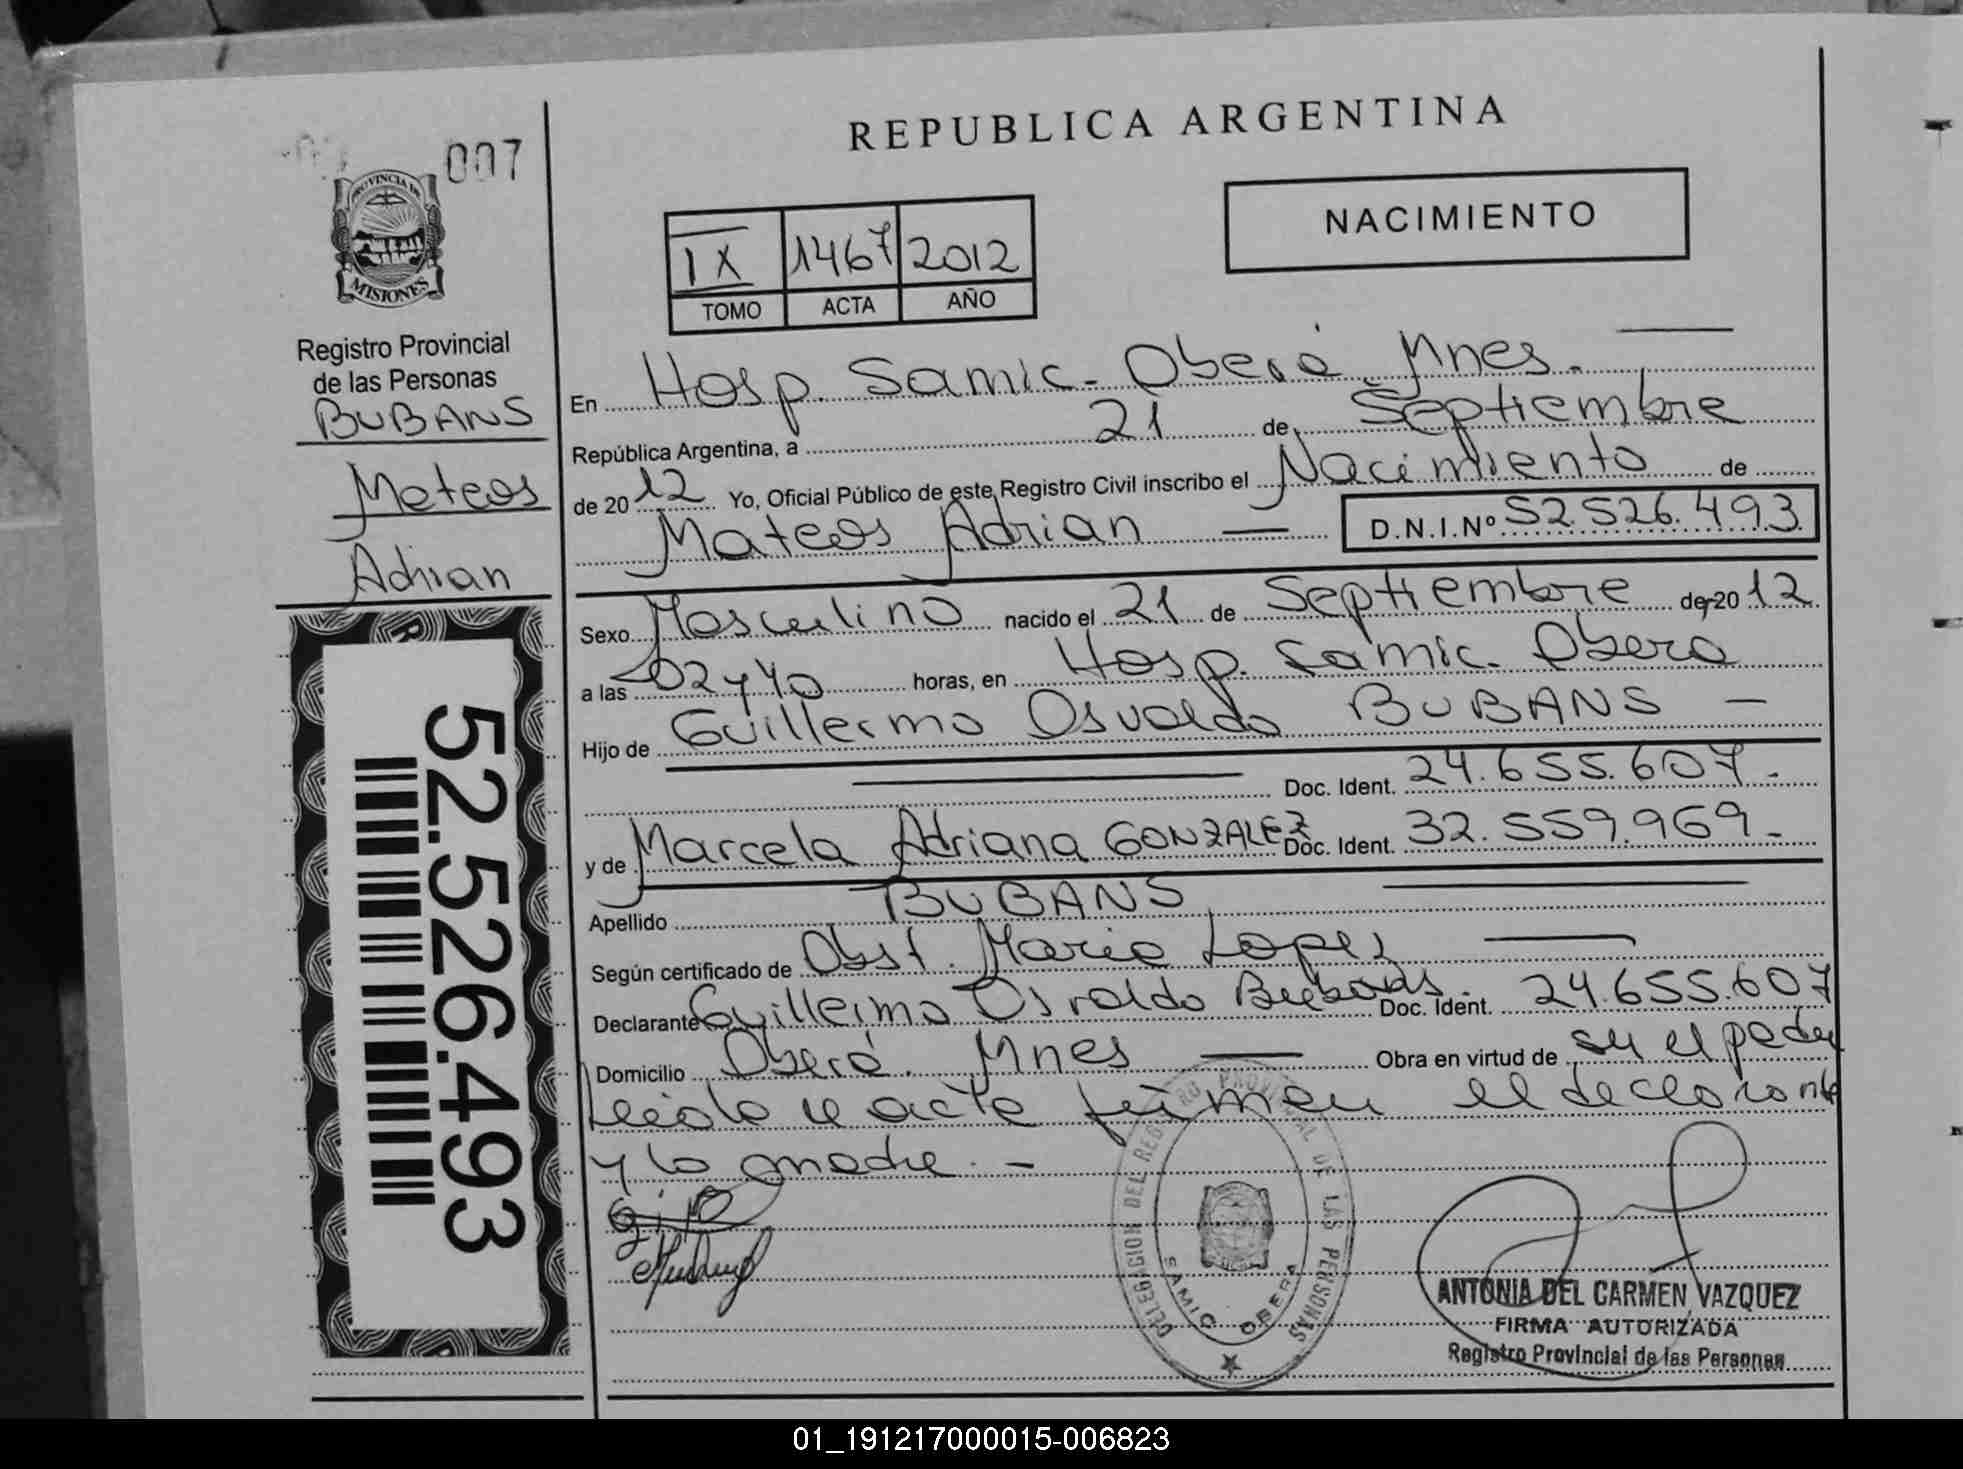 REPUBLICA ARGENTINA
007
PROVINCIA DE
MISIONES
Registro Provincial
de las Personas
BUBANS
Mateos
Adrian
52.526.493
IX 1467 2012
TOMO ACTA AÑO
NACIMIENTO
En Hosp. Samic. Oberá Mnes.
República Argentina, a 21 de Septiembre
de 2012 Yo, Oficial Público de este Registro Civil inscribo el Nacimiento de
Mateos Adrian — D.N.I.Nº 52.526.493
Sexo Masculino nacido el 21 de Septiembre de 2012
a las 02 y 40 horas, en Hosp. Samic. Obera
Hijo de Guillermo Osvaldo BUBANS —
Doc. Ident. 24.655.607.
y de Marcela Adriana GONZALEZ Doc. Ident. 32.559.969.
Apellido BUBANS
Según certificado de Obst. Maria Lopez
Declarante Guillermo Osvaldo Bubans. Doc. Ident. 24.655.607
Domicilio Oberá. Mnes — Obra en virtud de
acta firman el declarante
y la madre. —
DELEGACION DEL REGISTRO PROVINCIAL DE LAS PERSONAS
SAMIC OBERA
ANTONIA DEL CARMEN VAZQUEZ
FIRMA AUTORIZADA
Registro Provincial de las Personas
01_191217000015-006823